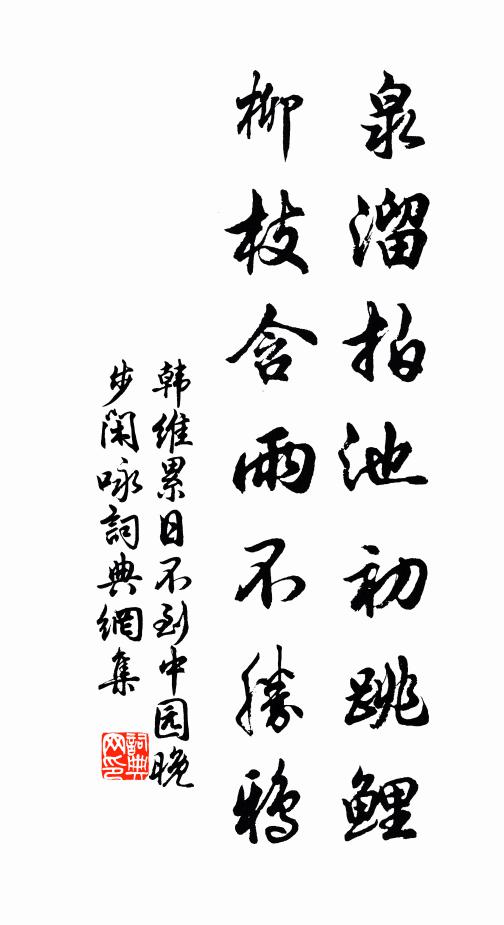 泉溜拍池初跳鲤
柳枝含雨不勝鴉
韩維累日不到中园晚
步闲咏詞典網集
詞典
网印